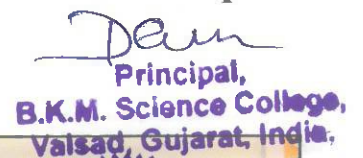 Principal,
B.K.M. Science College,
Valsad, Gujarat, India,